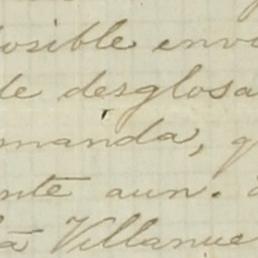 posible envi
de desglosa
manda, q
nte aun.
la Villanue